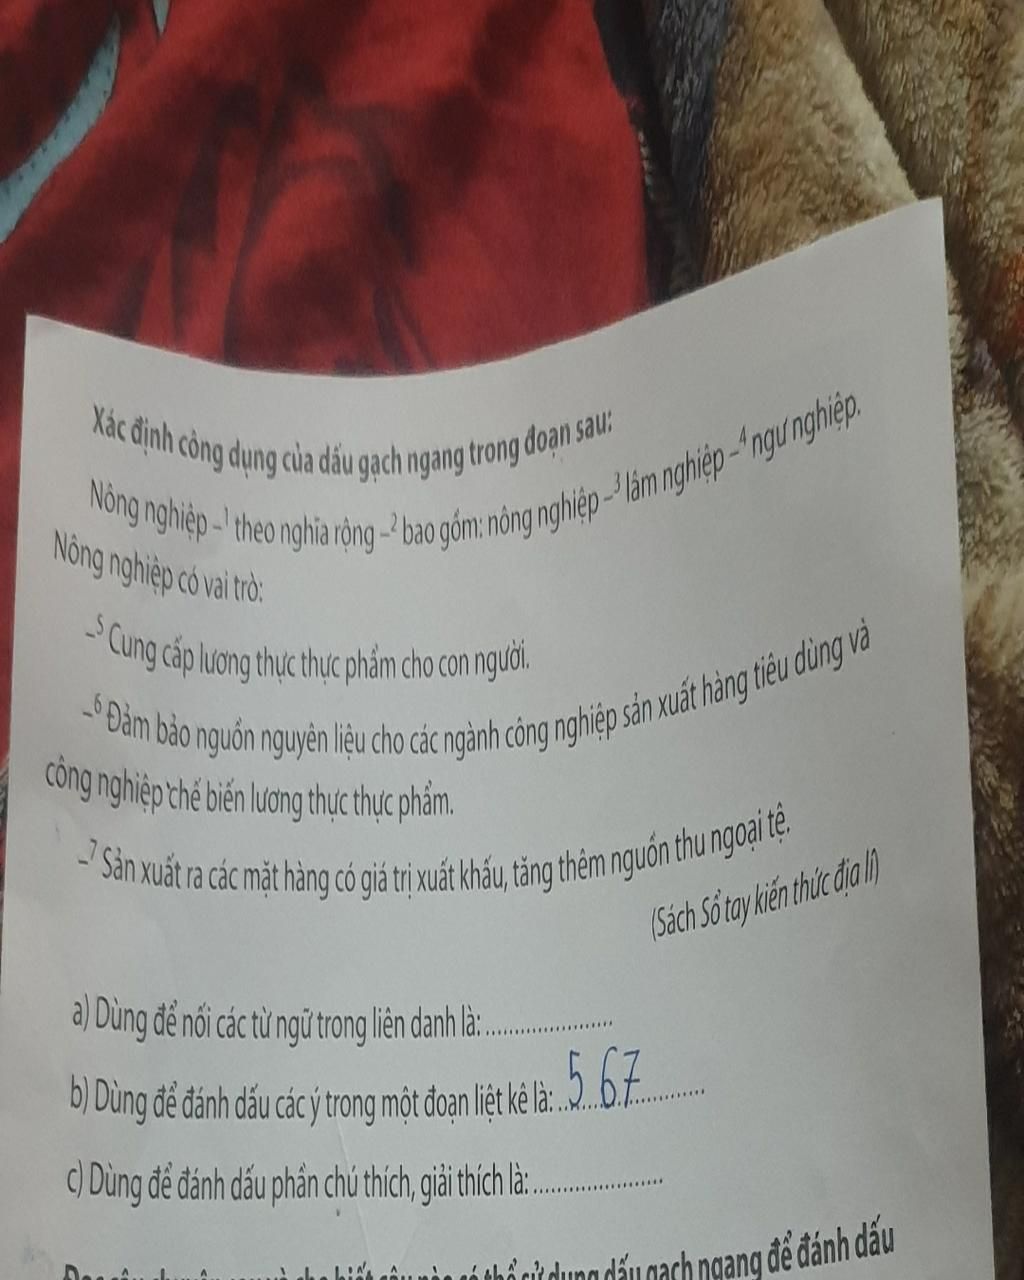 Xác định công dụng của dấu gạch ngang trong đoạn sau:
Nông nghiệp –¹ theo nghĩa rộng –² bao gồm: nông nghiệp –³ lâm nghiệp –⁴ ngư nghiệp.
Nông nghiệp có vai trò:
–⁵ Cung cấp lương thực thực phẩm cho con người.
–⁶ Đảm bảo nguồn nguyên liệu cho các ngành công nghiệp sản xuất hàng tiêu dùng và
công nghiệp chế biến lương thực thực phẩm.
–⁷ Sản xuất ra các mặt hàng có giá trị xuất khẩu, tăng thêm nguồn thu ngoại tệ.
(Sách Sổ tay kiến thức địa lí)
a) Dùng để nối các từ ngữ trong liên danh là: ......................
b) Dùng để đánh dấu các ý trong một đoạn liệt kê là: ..5..67............
c) Dùng để đánh dấu phần chú thích, giải thích là: ......................
dấu gạch ngang để đánh dấu